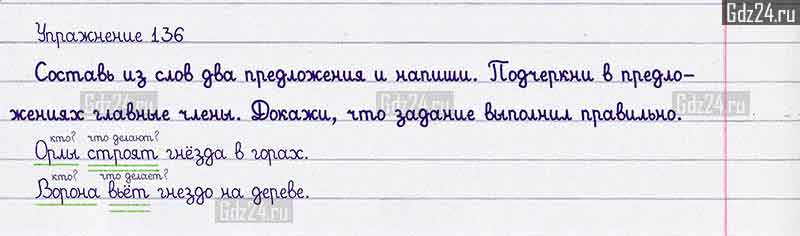 Gdz24.ru
Упражнение 136
Составь из слов два предложения и напиши. Подчеркни в предло-
Gdz24.ru Gdz24.ru
жениях главные члены. Докажи, что задание выполнил правильно.
кто? что делают?
Орлы строят гнёзда в горах.
кто? что делает?
Ворона вьёт гнездо на дереве.
Gdz24.ru